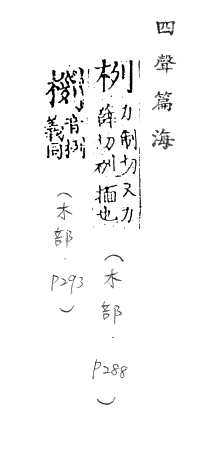 四聲篇海
栵力制切又力
薛切栵栭也
(木部.P288)
音栵
義同
(木部.P293)